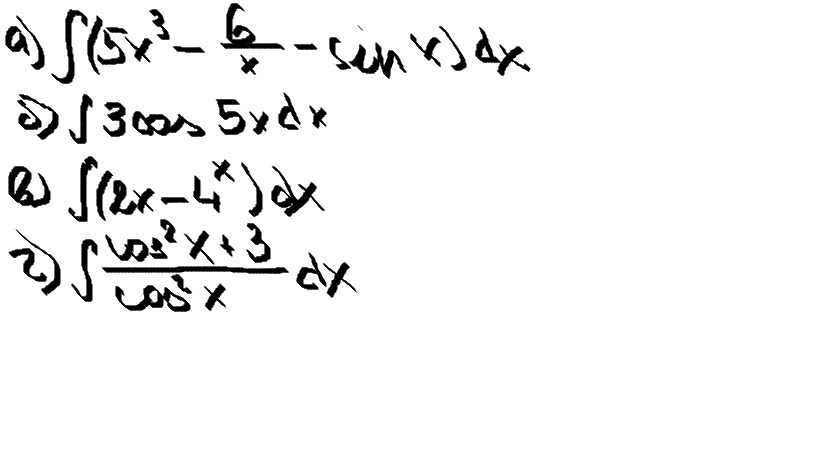 а) ∫(5x³ − 6/x − sin x) dx
б) ∫3cos 5x dx
в) ∫(2x − 4ˣ) dx
г) ∫ (cos²x + 3)/(cos²x) dx